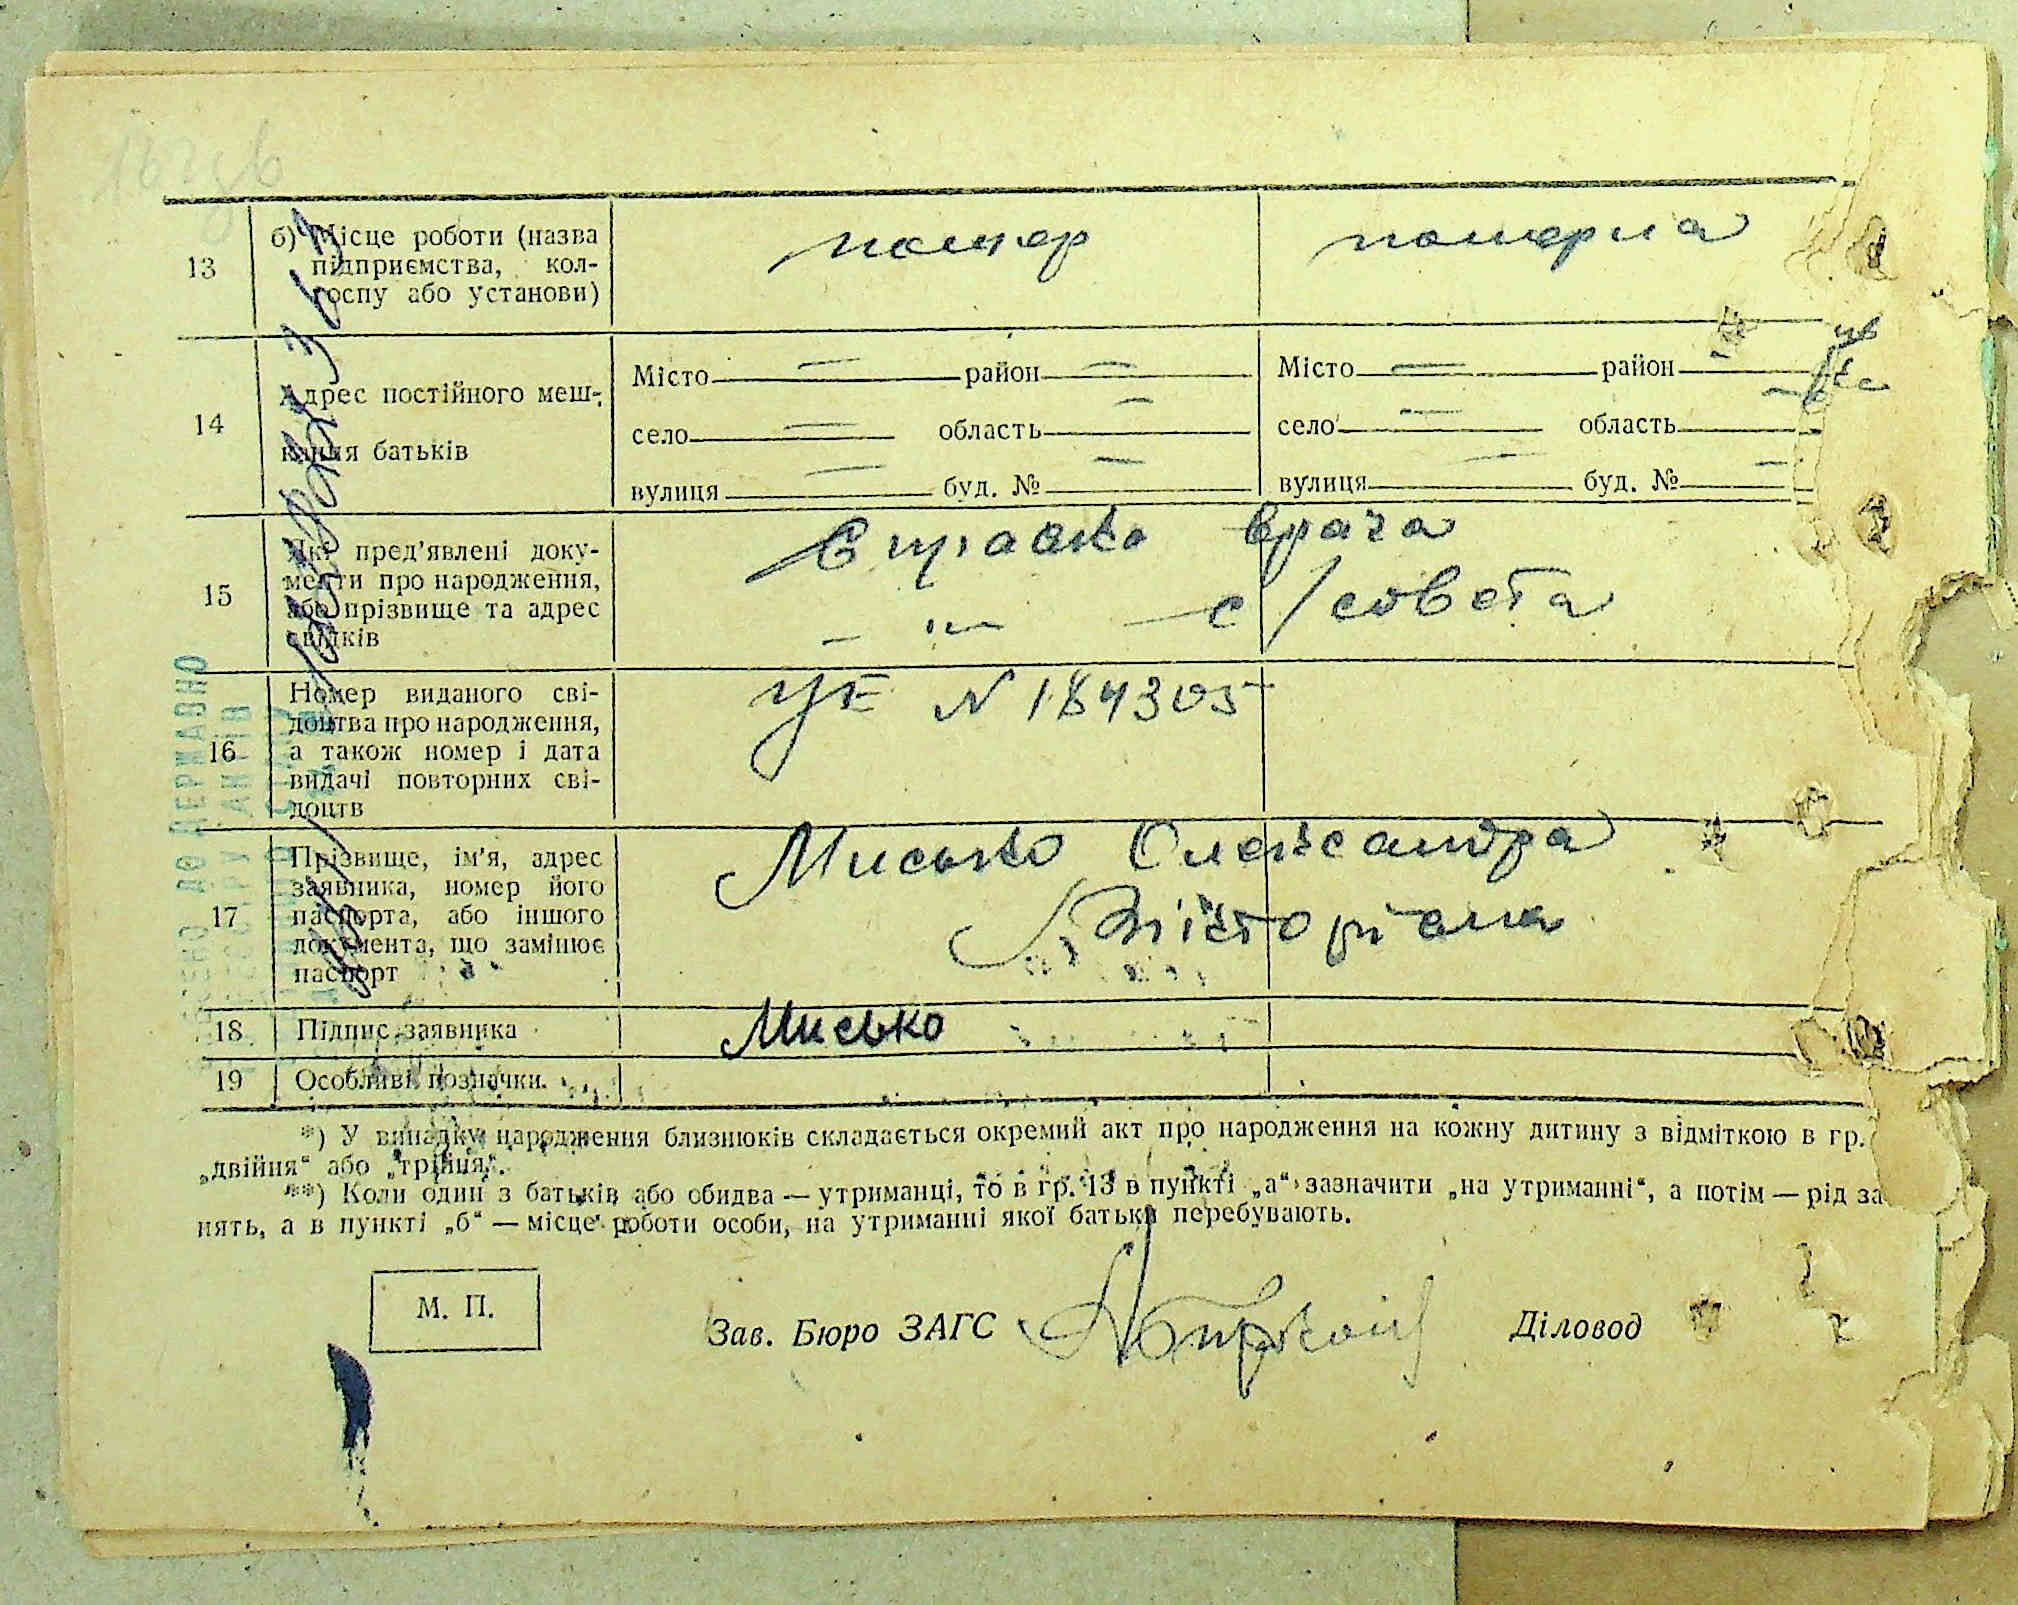 13
б) Місце роботи (назва
підприємства, кол-
госпу або установи)
помер
померла
14
Адрес постійного меш-
кання батьків
Місто — район —
село — область —
вулиця — буд. № —
Місто — район —
село — область
вулиця — буд. № —
15
Які пред’явлені доку-
менти про народження,
або прізвище та адрес
свідків
Справка врача
— " — с/совета
16
Номер виданого сві-
доцтва про народження,
а також номер і дата
видачі повторних сві-
доцтв
УЕ N 184305
17
Прізвище, ім’я, адрес
заявника, номер його
паспорта, або іншого
документа, що замінює
паспорт
Мисько Олександра
18
Підпис заявника
Мисько
19
Особливі позначки.
*) У випадку народження близнюків складається окремий акт про народження на кожну дитину з відміткою в гр.
„двійня“ або „трійня“.
**) Коли один з батьків або обидва — утриманці, то в гр. 13 в пункті „а“ зазначити „на утриманні“, а потім — рід за
нять, а в пункті „б“ — місце роботи особи, на утриманні якої батьки перебувають.
М. П.
Зав. Бюро ЗАГС
Діловод